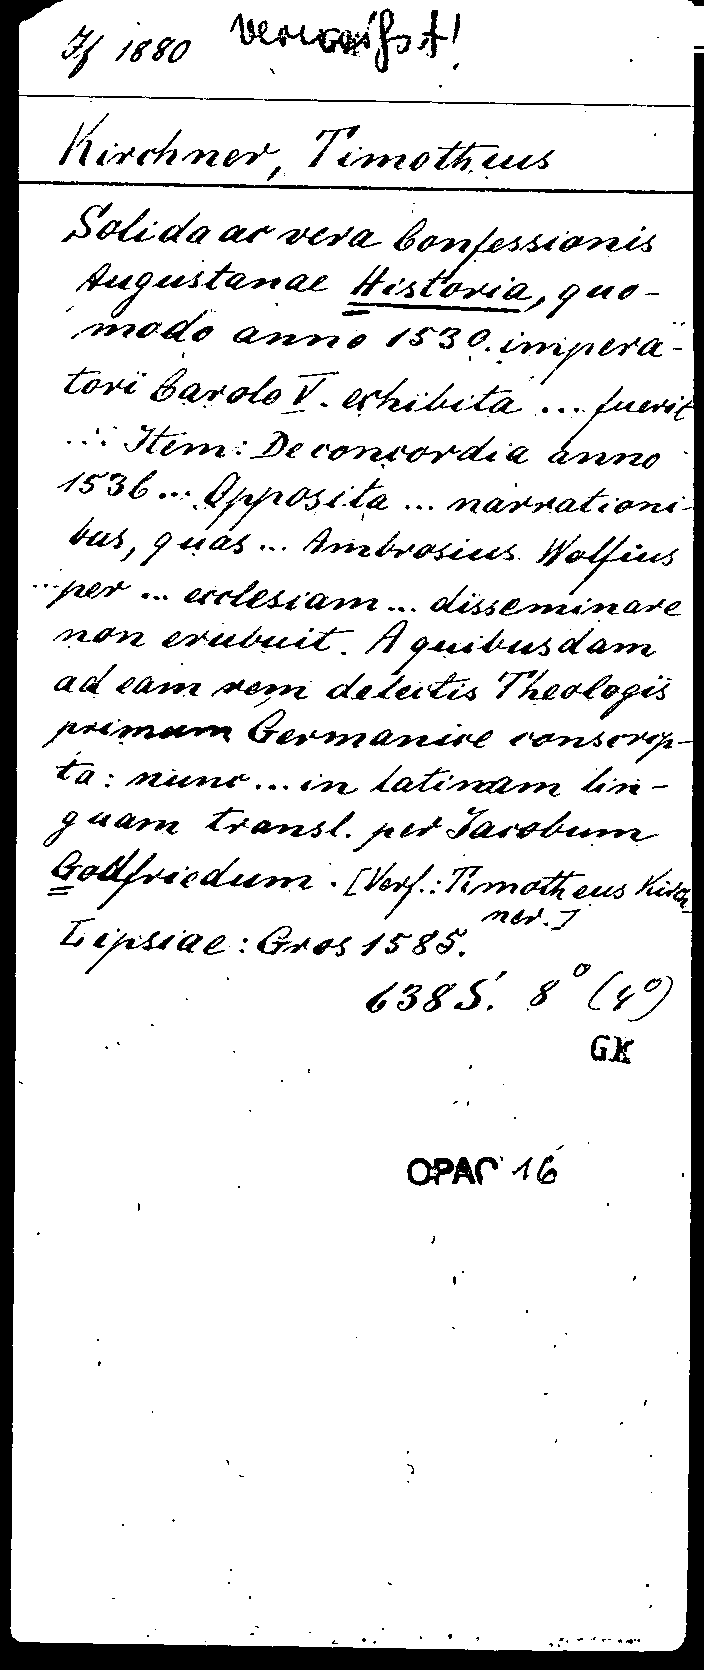 If 1880 verweist!
Kirchner, Timotheus
Solida ac vera Confessionis
Augustanae Historia, quo-
modo anno 1530. impera-
tori Carolo V. exhibita ... fuerit
... Item: De concordia anno
1536 ... Opposita ... narrationi-
bus, quas ... Ambrosius Wolfius
... per ... ecclesiam ... disseminare
non erubuit. A quibusdam
ad eam rem delectis Theologis
primum Germanice conscrip-
ta: nunc ... in latinam lin-
guam transl. per Jacobum
Godfriedum. [Verf.: Timotheus Kirch-
ner.]
Lipsiae: Gros 1585.
638 S. 8° (4°)
GK
OPAC 16